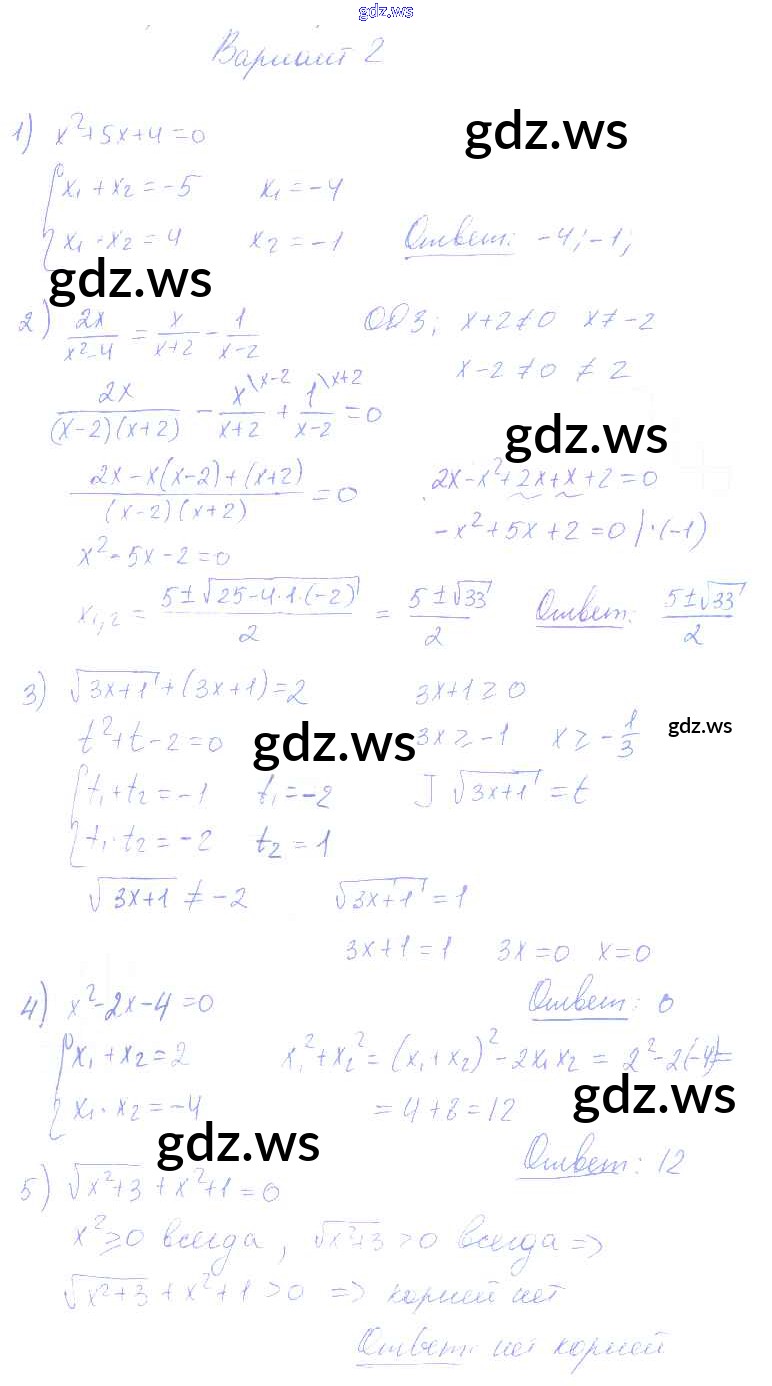 gdz.ws
Вариант 2
1) x²+5x+4=0
gdz.ws
x₁+x₂=-5 x₁=-4
x₁·x₂=4 x₂=-1 Ответ: -4; -1;
gdz.ws
2) 2x/(x²-4) = x/(x+2) - 1/(x-2) ОДЗ; x+2≠0 x≠-2
x-2≠0 ≠2
2x/((x-2)(x+2)) - x\x-2/(x+2) + 1\x+2/(x-2) = 0
gdz.ws
(2x-x(x-2)+(x+2))/((x-2)(x+2)) = 0 2x-x²+2x+x+2=0
-x²+5x+2=0 |·(-1)
x²-5x-2=0
x₁,₂ = (5±√(25-4·1·(-2)))/2 = (5±√33)/2 Ответ: (5±√33)/2
3) √(3x+1)+(3x+1)=2 3x+1≥0
t²+t-2=0 gdz.ws 3x≥-1 x≥-1/3 gdz.ws
t₁+t₂=-1 t₁=-2 ] √(3x+1)=t
t₁·t₂=-2 t₂=1
√(3x+1)≠-2 √(3x+1)=1
3x+1=1 3x=0 x=0
4) x²-2x-4=0 Ответ: 0
x₁+x₂=2 x₁²+x₂²=(x₁+x₂)²-2x₁x₂=2²-2(-4)=
x₁·x₂=-4 =4+8=12 gdz.ws
gdz.ws Ответ: 12
5) √(x²+3)+x²+1=0
x²≥0 всегда, √(x²+3)>0 всегда =>
√(x²+3)+x²+1>0 => корней нет
Ответ: нет корней